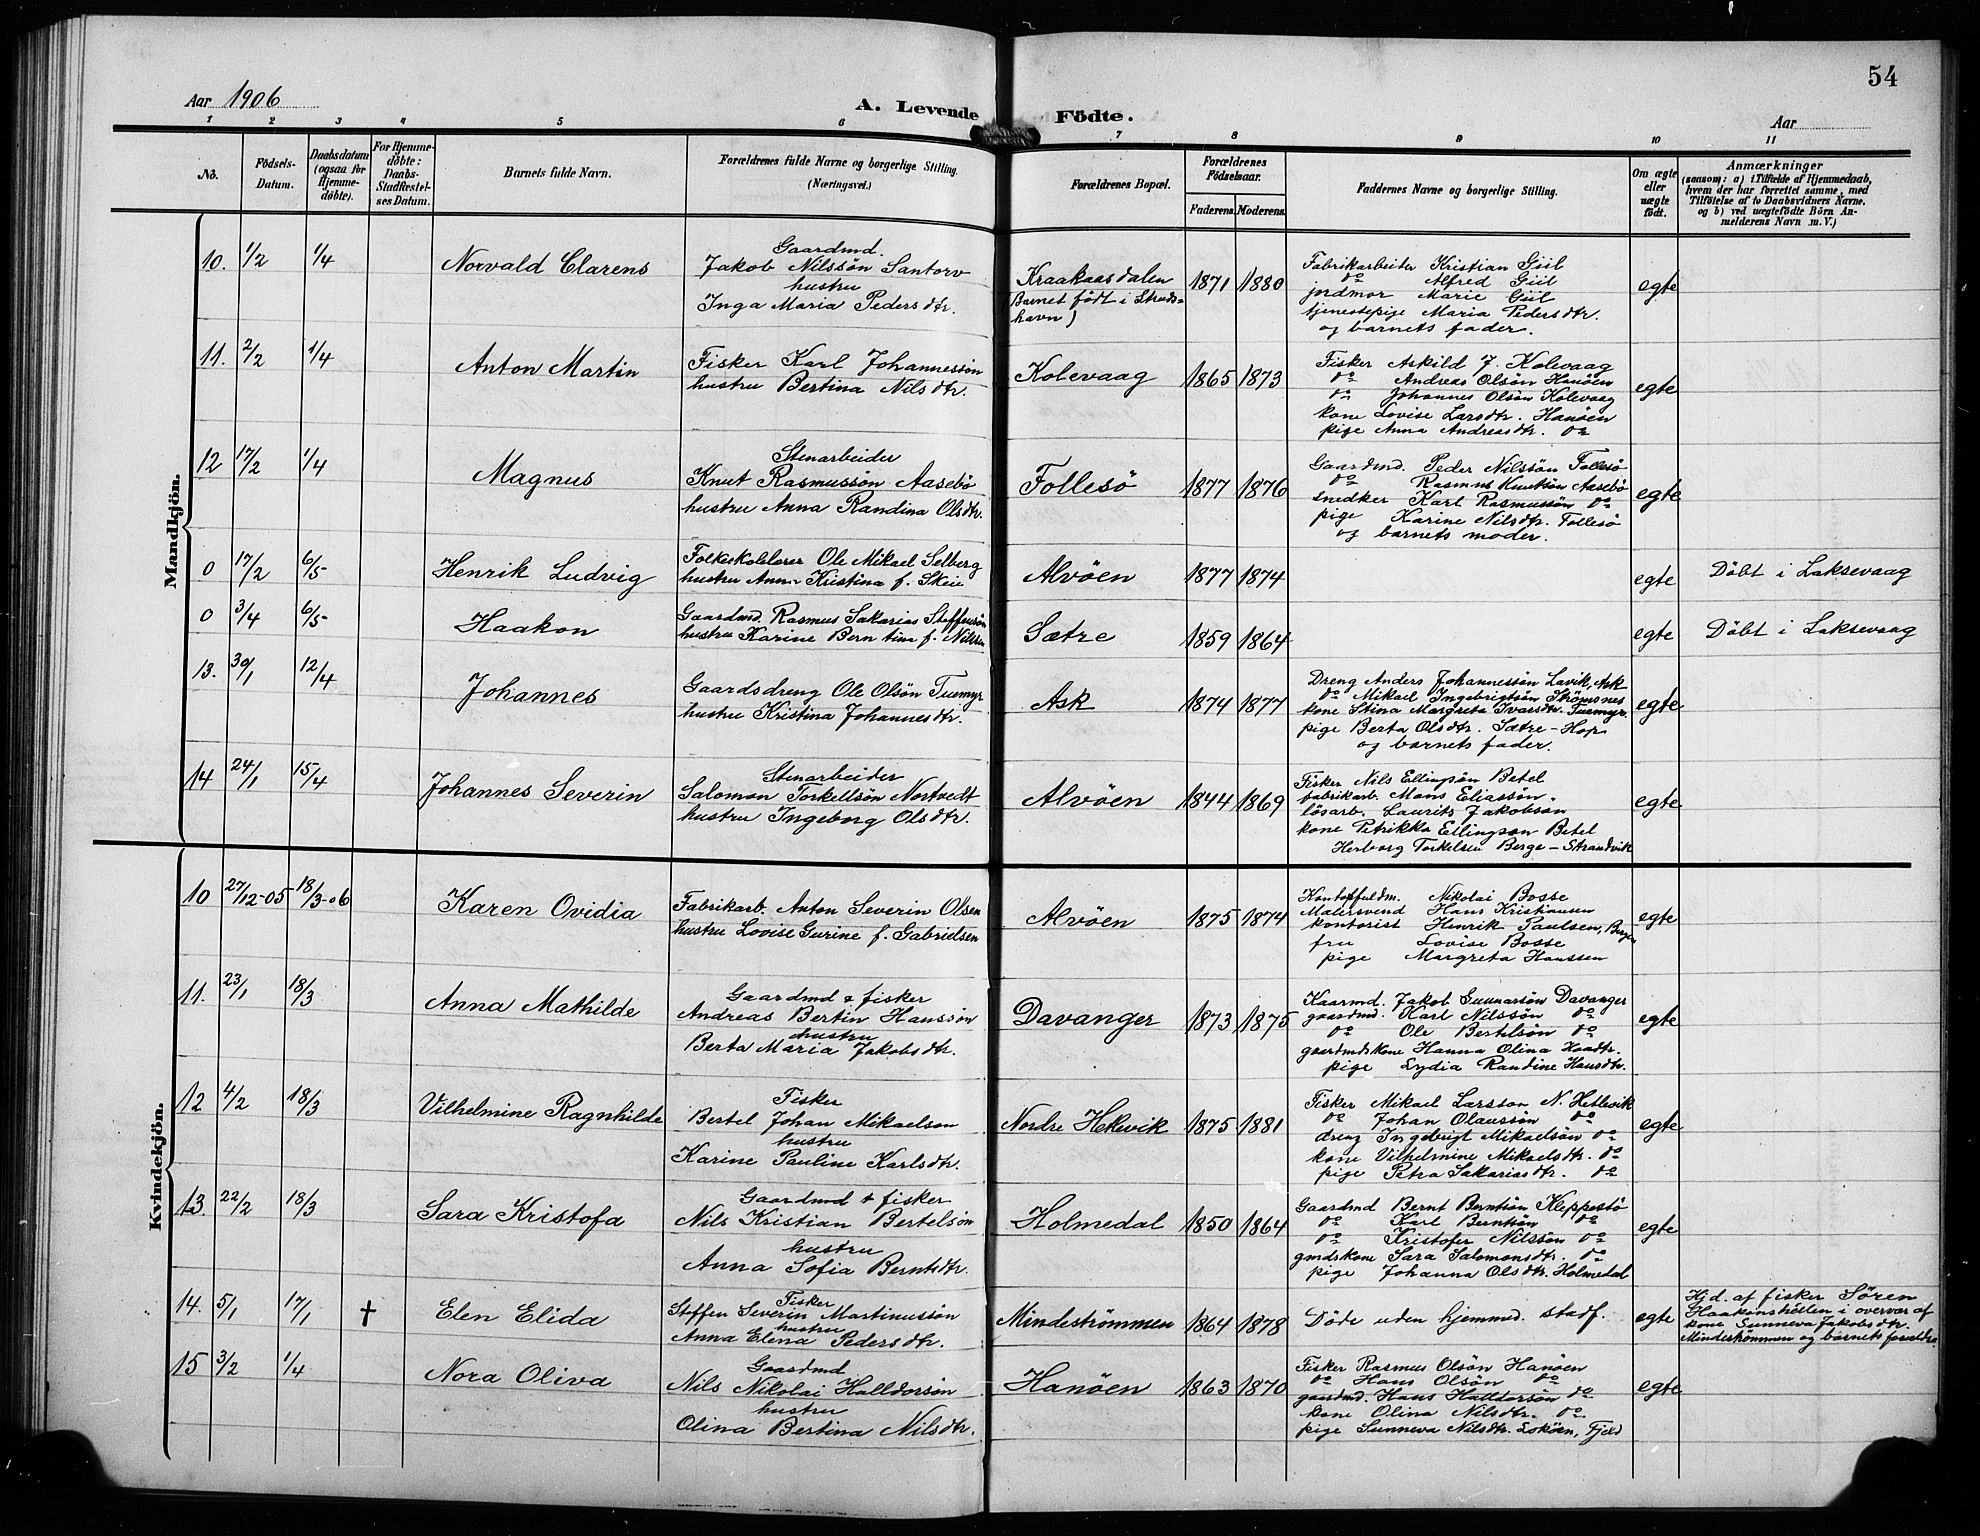 54
Aar 1906
A. Levende Födte.
Aar
1 2 3 4 5 6 7 8 9 10 11
No.
Födsels-Datum.
Daabsdatum (ogsaa for Hjemmedöbte).
For Hjemmedöbte: Daabs-Stadfestelses Datum.
Barnets fulde Navn.
Forældrenes fulde Navne og borgerlige Stilling.
(Næringsvei.)
Forældrenes Bopæl.
Forældrenes Födselsaar.
Faderens. Moderens.
Faddernes Navne og borgerlige Stilling.
Om ægte eller uægte födt.
Anmærkninger
(saasom: a) i Tilfælde af Hjemmedaab, hvem der har forrettet samme, med Tilföielse af to Daabsvidners Navne, og b) ved uægtefödte Börn Anmelderens Navn m.V.)
Mandkjön.
10. 1/2 1/4 Norvald Clarens
Gaardmd.
Jakob Nilssön Santorv
hustru
Inga Maria Pedersdtr.
Kraakaasdalen
(Barnet födt i Struds-
havn)
1871 1880
Fabrikarbeider Kristian Giil
do Alfred Giil
jordmor Marie Giil
tjenestepige Maria Pedersdtr.
og barnets fader.
egte
11. 2/2 1/4 Anton Martin
Fisker Karl Johannessön
hustru Bertina Nilsdtr.
Kolevaag 1865 1873
Fisker Askild J. Kolevaag
do Andreas Olsön Hanöen
do Johannes Olsön Kolevaag
kone Lovise Larsdtr. Hanöen
pige Anna Andreasdtr. do
egte
12 17/2 1/4 Magnus
Stenarbeider
Knut Rasmussön Aasebö
hustru Anna Randina Olsdtr.
Follesö 1877 1876
Gaardmd. Peder Nilssön Follesö
do Rasmus Knutsön Aasebö
snedker Karl Rasmussön do
pige Karine Nilsdtr. Follesö
og barnets moder.
egte
0 17/2 6/5 Henrik Ludvig
Folkeskolelærer Ole Mikael Selberg
hustru Anna Kristina f. Skeie
Alvöen 1877 1874 egte Döbt i Laksevaag
0 3/4 6/5 Haakon
Gaardmd. Rasmus Sakarias Steffensön
hustru Karine Berntina f. Nilsen
Sætre 1859 1864 egte Döbt i Laksevaag
13. 30/1 12/4 Johannes
Gaardsdreng Ole Olsön Tuemyr
hustru Kristina Johannesdtr.
Ask 1874 1877
Dreng Anders Johannessön Lavik, Ask
do Mikael Ingebrigtsön Strömsnes
kone Stina Margreta Ivarsdtr. Tuemyr.
pige Berta Olsdtr. Sætre-Hop
og barnets fader.
egte
14 24/1 15/4 Johannes Severin
Stenarbeider
Salomon Torkellsön Nortvedt
hustru Ingeborg Olsdtr.
Alvöen 1844 1869
Fisker Nils Ellingsön Betel
fabrikarb. Mons Eliassön.
lösarb. Laurits Jakobsön
kone Petrikka Ellingson Betel
Herborg Torkelsen Berge-Strandvik
egte
Kvindekjön.
10 27/12-05 18/3-06 Karen Ovidia
Fabrikarb. Anton Severin Olsen
hustru Lovise Gurine f. Gabrielsen
Alvöen 1875 1874
Kontoffuldm. Nikolai Bosse
Malersvend Hans Kristiansen
kontorist Henrik Paulsen, Bergen
fru Lovise Bosse
pige Margreta Hanssen
egte
11. 23/1 18/3 Anna Mathilde
Gaardmd & fisker
Andreas Bertin Hanssön
hustru
Berta Maria Jakobsdtr.
Davanger 1873 1875
Kaarmd. Jakob Gunnarsön Davanger
gaardmd. Karl Nilssön do
do Ole Bertilsön do
gaardmdskone Hanna Olina Haadtr.
pige Lydia Randine Hansdtr.
egte
12 4/2 18/3 Vilhelmine Ragnhilde
Fisker
Bertel Johan Mikaelson
hustru
Karine Pauline Karlsdtr.
Nordre Hetlevik 1875 1881
Fisker Mikael Larsson N. Hetlevik
do Johan Olaussön do
dreng Ingebrigt Mikaelsön do
kone Vilhelmine Mikaelsdtr. do
pige Petra Sakariasdtr. do
egte
13. 22/2 18/3 Sara Kristofa
Gaardmd & fisker
Nils Kristian Bertelsön
hustru
Anna Sofia Berntsdtr.
Holmedal 1850 1864
Gaardmd Bernt Berntsön Kleppestö
do Karl Berntsön do
do Kristofer Nilssön do
gmdskone Sara Salomonsdtr. do
pige Johanna Olsdtr. Holmedal
egte
14. 5/1 17/1 † Elen Elida
Fisker
Steffen Severin Martinussön
hustru
Anna Elena Pedersdtr.
Mindeströmmen 1864 1878
Döde uden hjemmed. stadf. egte
Hjd. af fisker Sören
Haakonshellen i overvær af
kone Sunneva Jakobsdtr.
Mindeströmmen og barnets forældre
15 3/2 1/4 Nora Oliva
Gaardmd
Nils Nikolai Halldorsön
hustru
Olina Bertina Nilsdtr.
Hanöen 1863 1870
Fisker Rasmus Olsön Hanöen
do Hans Olsön do
gaardmd. Hans Halldorsön do
kone Olina Nilsdtr. do
pige Sunneva Nilsdtr. Loköen, Fjeld
egte